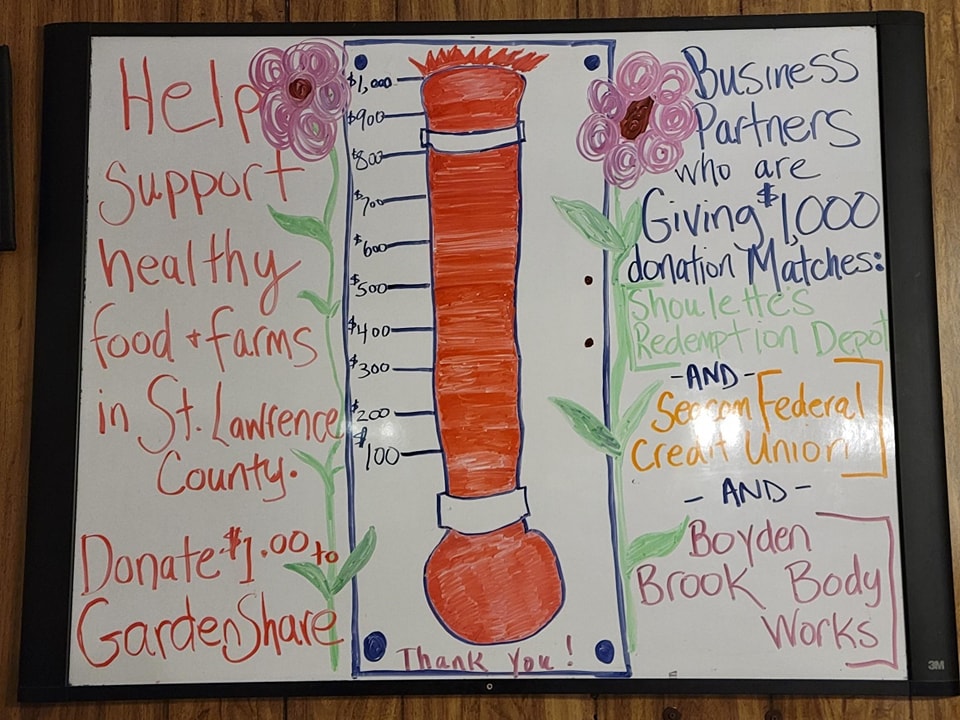 Help
support
healthy
food + farms
in St. Lawrence
County.
Donate $1.00 to
GardenShare
$1,000
$900
$800
$700
$600
$500
$400
$300
$200
$100
Thank you!
Business
Partners
who are
Giving $1,000
donation Matches:
Shoulette's
Redemption Depot
-AND-
Seacom Federal
Credit Union
- AND -
Boyden
Brook Body
Works
3M